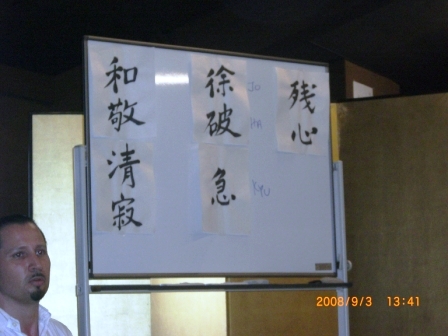 残心
徐破急
JO
HA
KYU
和敬清寂
2008/9/3 13:41